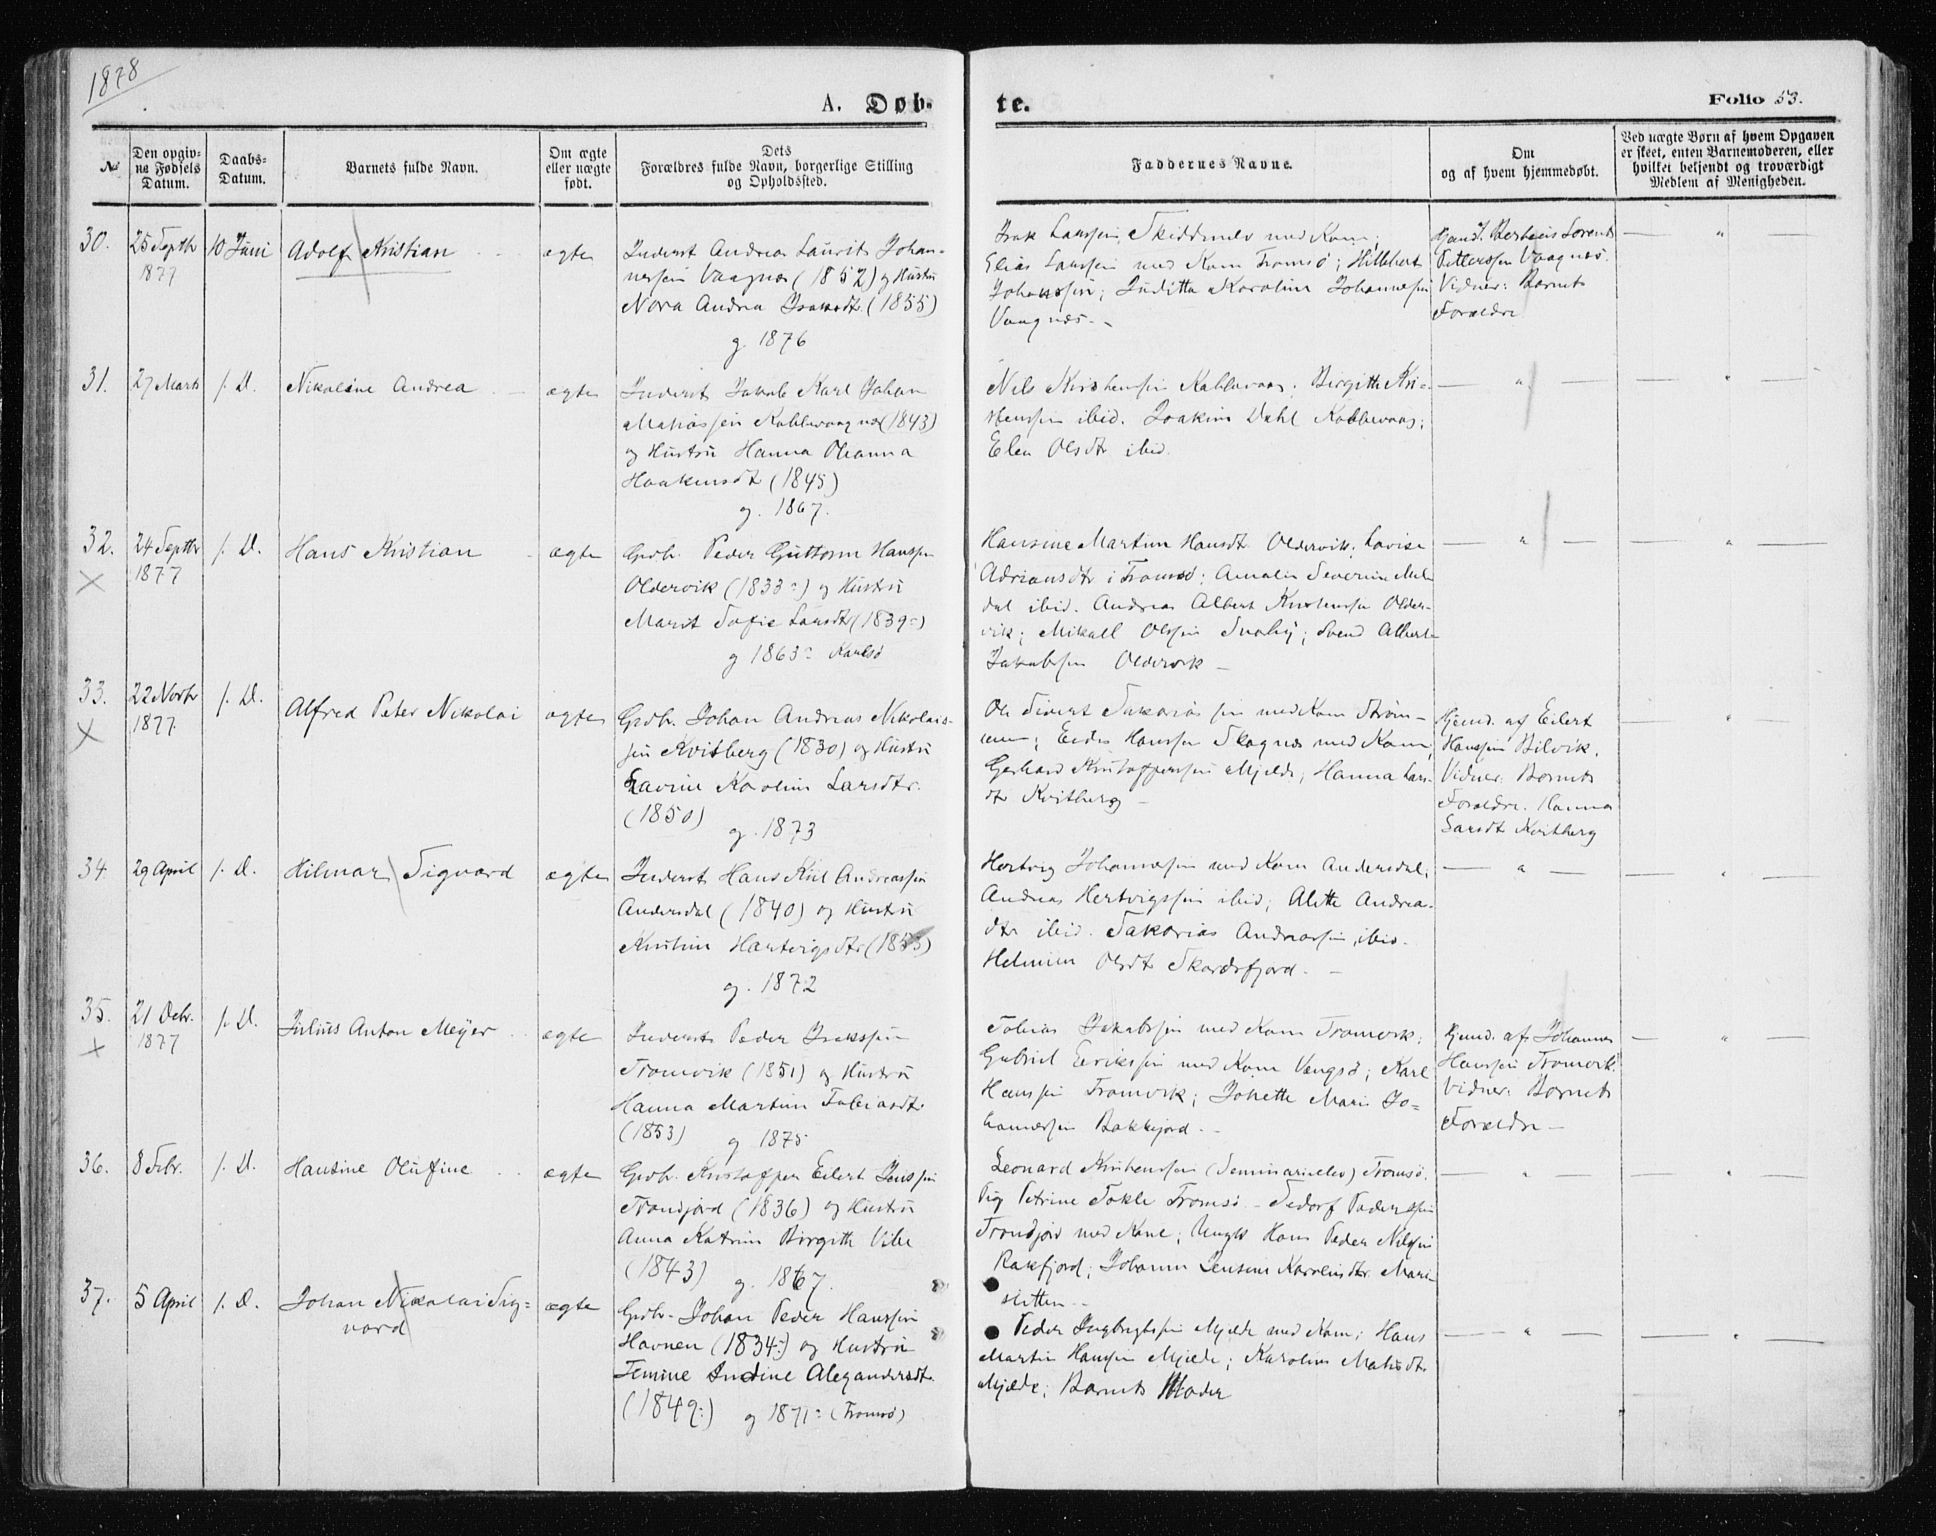 1878
A. Døb-
te.
Folio 53.
No
Den opgiv-
ne Fødsels
Datum.
Daabs-
Datum.
Barnets fulde Navn.
Om ægte
eller uægte
født.
Dets
Forældres fulde Navn, borgerlige Stilling
og Opholdssted.
Faddernes Navne.
Om
og af hvem hjemmedøbt.
Ved uægte Børn af hvem Opgaven
er skeet, enten Barnemoderen, eller
hvilket bekjendt og troværdigt
Medlem af Menigheden.
30.
25 Septbr
1877
10 Juni
Adolf Kristian
ægte
Inderst Andreas Laurits Johan-
nessen Vaagnæs (1852) og Hustru
Nora Andrea Isaksdtr. (1855)
g. 1876
Isak Larssen, Skiddenelv med Kone;
Elias Larssen med Kone Tromsø; Hilbert
Johanssen; Juditta Karoline Johannessen
Vaagnæs.-
Hjemd. Bertheus Lorents
Pettersen Vaagnæs.
Vidner: Barnets
Forældre
31.
27 Marts
s. D.
Nikoline Andrea
ægte
Inderst Jakob Karl Johan
Matiassen Kobbevaagnæs (1843)
og Hustru Hanna Oleanna
Haakensdtr (1845)
g. 1867.
Nils Kristenssen Kobbevaag; Birgithe Kri-
stenssen ibid. Joakim Dahl Kobbevaag;
Elen Olsdtr ibid.
32.
24 Septbr
1877
s. D.
Hans Kristian
ægte
Grdbr. Peder Guttorm Hanssen
Oldervik (1833) og Hustru
Marit Sofie Larsdtr (1839)
g 1863 Karlsø
Hansine Martine Hansdtr Oldervik; Lovise
Adriansdtr i Tromsø; Amalie Severine Mel
dal ibid. Andreas Albert Kristenssen Older-
vik; Mikall Olssen Snarby; Svend Albert
Jakobssen Oldervik -
33.
22 Novbr
1877
s. D.
Alfred Peter Nikolai
ægte
Grdbr. Johan Andreas Nikolais-
sen Kvitberg (1830) og Hustru
Lavine Karoline Larsdtr.
(1850)
g. 1873
Ole Sivert Sakariassen med Kone Strøm-
men; Hanssen Skognæs med Kone,
Gerhard Kristoffersen Mjelde; Hanna Lars-
dtr Kvitberg -
Hjemd. af Eilert
Hanssen Bilvik.
Vidner: Barnets
Forældre. Hanna
Larsdtr Kvitberg
34
29 April
s. D.
Hilmar Sigvard
ægte
Inderst Hans Kiil Andreassen
Andersdal (1840) og Hustru
Kristine Hartvigsdtr (1853)
g. 1872
Hertvig Johannessen med Kone Andersdal;
Andreas Hertvigssen ibid; Alette Andrea-
dtr ibid. Sakarias Andreassen, ibid.
Helmine Olsdtr Skardsfjord. -
35.
21 Debr.
1877
s. D.
Julius Anton Meyer
ægte
Inderst Peder Isakssen
Tromvik (1851) og Hustru
Hanna Martine Tobiasdtr.
(1853)
g 1875
Tobias Jakobssen med Kone Tromvik;
Gabriel Erikssen med Kone Vengsø; Karl
Hanssen Tromvik; Johette Marie Jo-
hannessen Bakkejord. -
Hjemd. af Johannes
Hanssen Tromvik.
Vidner: Barnets
Forældre -
36.
8 Febr.
s. D.
Hansine Olufine
ægte
Grdbr. Kristoffer Eilert Jenssen
Tronsjord (1836) og Hustru
Anna Katrine Birgitte Vibe
(1843)
g. 1867.
Leonard Kristenssen (Seminarielev) Tromsø.
Pig Petrine Fokle Tromsø. - Fedorf Pederssen
Tronsjord med Kone; Ungk Hans Peder Nilssen
Rakfjord; Johanna Jensine Karolusdtr. Mari-
sletten.-
37.
5 April
s. D.
Johan Nikolai Sig=
vard
ægte
Grdbr- Johan Peder Hanssen
Havnen (1834) og Hustru
Femine Indine Alexandersdtr.
(1849)
g 1871 (Tromsø)
Peder Ingbrigtssen Mjelde med Kone; Hans
Martin Hanssen Mjelde; Karoline Matisdtr
Mjelde; Barnets Moder